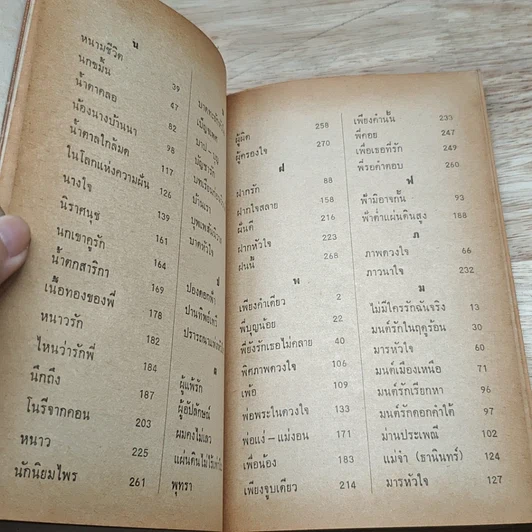 น
หนามชีวิต 39
นกขมิ้น 47
น้ำตาคลอ 82
น้องนางบ้านนา 98
น้ำตาลใกล้มด 117
ในโลกแห่งความฝัน 126
นางใจ 139
นิราศนุช 161
นกเขาคูรัก 164
น้ำตกสาริกา 169
เนื้อทองของพี่ 178
หนาวรัก 182
ไหนว่ารักพี่ 184
นึกถึง 187
โนรีจากคอน 203
หนาว 225
นักนิยมไพร 261
บ้านเรา
บาดหัวใจ
ป
ปองดอกฟ้า
ผ
ผู้แพ้รัก
ผู้อัปลักษณ์
ผมคงไม่เลว
แผ่นดินไม่ไร้
พุทรา
ผู้ผิด 258
ผู้ครองใจ 270
ฝ
ฝากรัก 88
ฝากใจสลาย 158
ฝันดี 216
ฝากหัวใจ 223
ฝนนี้ 268
พ
เพียงคำเดียว 2
พี่บุญน้อย 22
พี่ยังรักเธอไม่คลาย 40
พิศภาพดวงใจ 106
เพ้อ 109
พ่อพระในดวงใจ 133
พ่อแง่ - แม่งอน 171
เพื่อน้อง 183
เพียงจูบเดียว 214
เพียงคำนั้น 233
พี่คอย 247
เพื่อเธอที่รัก 249
พี่รอคำตอบ 260
ฟ
ฟ้ามิอาจกั้น 93
ฟ้าต่ำแผ่นดินสูง 188
ภ
ภาพดวงใจ 66
ภาวนาใจ 232
ม
ไม่มีใครรักฉันจริง 13
มนต์รักในฤดูร้อน 30
มารหัวใจ 60
มนต์เมืองเหนือ 71
มนต์รักเรียกหา 96
มนต์รักดอกคำใต้ 97
ม่านประเพณี 102
แม่จ๋า (ธานินทร์) 124
มารหัวใจ 127